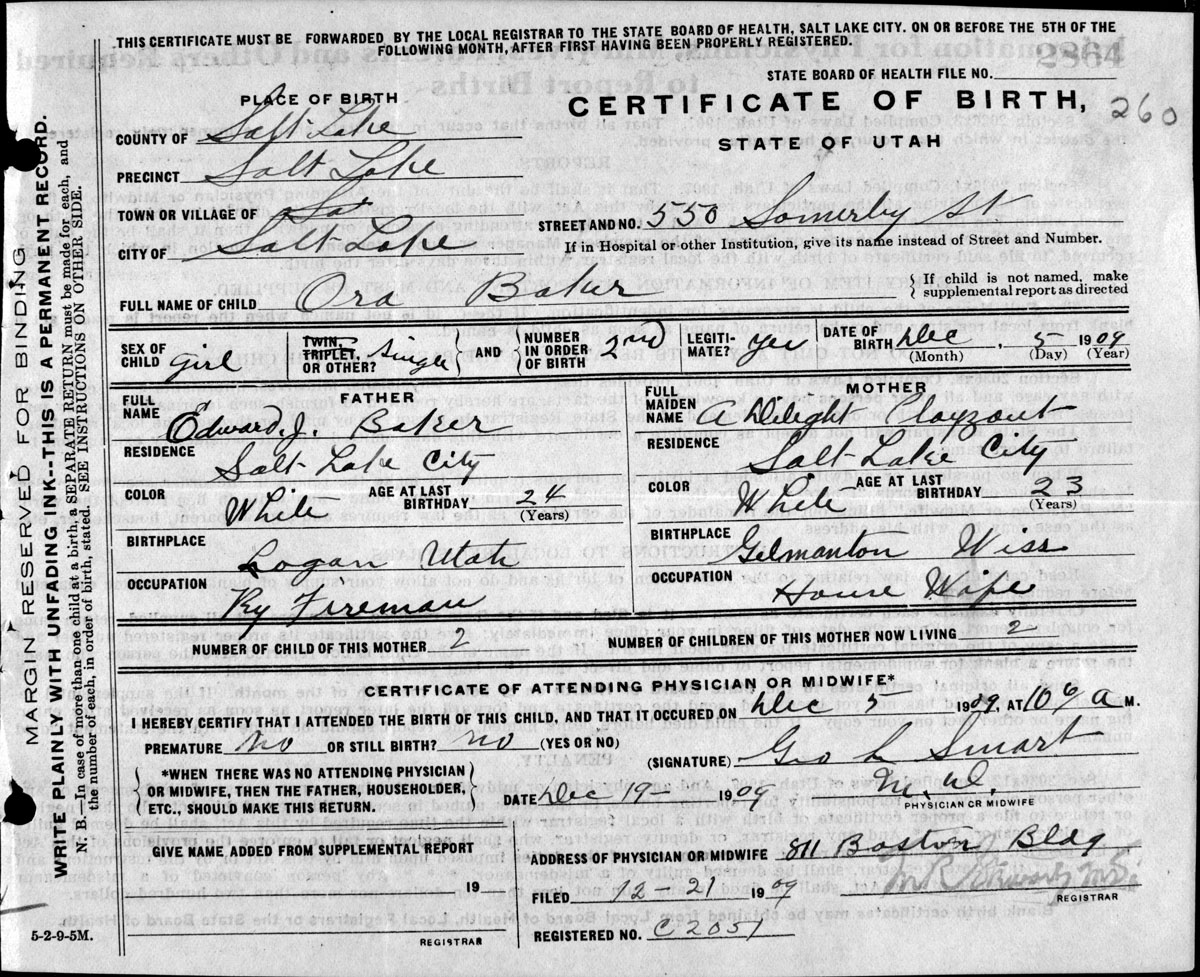 THIS CERTIFICATE MUST BE FORWARDED BY THE LOCAL REGISTRAR TO THE STATE BOARD OF HEALTH, SALT LAKE CITY. ON OR BEFORE THE 5TH OF THE
FOLLOWING MONTH, AFTER FIRST HAVING BEEN PROPERLY REGISTERED.
2864
STATE BOARD OF HEALTH FILE NO.
PLACE OF BIRTH
CERTIFICATE OF BIRTH,
260
COUNTY OF Salt Lake
STATE OF UTAH
PRECINCT Salt Lake
TOWN OR VILLAGE OF Sal
STREET AND NO. 550 Somerby St
CITY OF Salt Lake
If in Hospital or other Institution, give its name instead of Street and Number.
FULL NAME OF CHILD Ora Baker
If child is not named, make
supplemental report as directed
SEX OF CHILD girl
TWIN, TRIPLET, OR OTHER? Single
AND NUMBER IN ORDER OF BIRTH 2nd
LEGITIMATE? Yes
DATE OF BIRTH Dec, 5 1909
(Month) (Day) (Year)
FATHER
FULL NAME Edward. J. Baker
RESIDENCE Salt Lake City
COLOR White
AGE AT LAST BIRTHDAY 24
(Years)
BIRTHPLACE Logan Utah
OCCUPATION Ry Fireman
MOTHER
FULL MAIDEN NAME A Delight
RESIDENCE Salt Lake City
COLOR White
AGE AT LAST BIRTHDAY 23
(Years)
BIRTHPLACE Gilmanton Wiss
OCCUPATION House Wife
NUMBER OF CHILD OF THIS MOTHER 2
NUMBER OF CHILDREN OF THIS MOTHER NOW LIVING 2
CERTIFICATE OF ATTENDING PHYSICIAN OR MIDWIFE*
I HEREBY CERTIFY THAT I ATTENDED THE BIRTH OF THIS CHILD, AND THAT IT OCCURRED ON Dec 5 1909, AT 10 a M.
PREMATURE No OR STILL BIRTH? No (YES OR NO)
(SIGNATURE) Geo L Smart
M. D.
PHYSICIAN OR MIDWIFE
*WHEN THERE WAS NO ATTENDING PHYSICIAN
OR MIDWIFE, THEN THE FATHER, HOUSEHOLDER,
ETC., SHOULD MAKE THIS RETURN.
DATE Dec 19 - 1909
GIVE NAME ADDED FROM SUPPLEMENTAL REPORT
19
REGISTRAR
ADDRESS OF PHYSICIAN OR MIDWIFE 811 Boston Bldg
FILED 12-21 1909
REGISTRAR
REGISTERED NO. C 2051
5-2-9-5M.
MARGIN RESERVED FOR BINDING
WRITE PLAINLY WITH UNFADING INK--THIS IS A PERMANENT RECORD.
N. B.—In case of more than one child at a birth, a SEPARATE RETURN must be made for each, and
the number of each, in order of birth, stated. SEE INSTRUCTIONS ON OTHER SIDE.